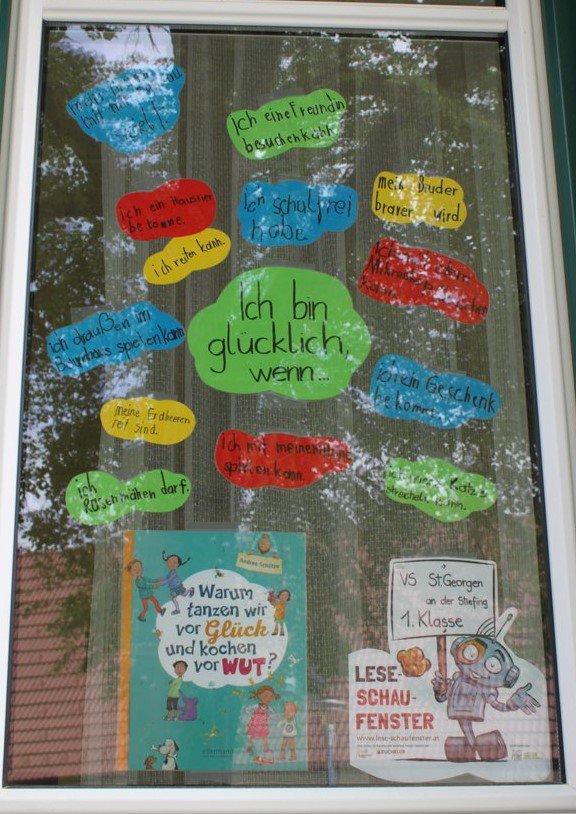 mein
Ich eine Freundin
besuchen kann.
ich ein Haustier
bekomme.
Ich schulfrei
habe
mein Bruder
braver wird.
ich reiten kann.
Ich bin
glücklich,
wenn...
ich draußen im
Baumhaus spielen kann
ich ein Geschenk
bekomme
meine Erdbeeren
reif sind.
Ich mit meinen
spielen kann.
ich
Rasenmähen darf.
Katze
streicheln kann.
Andrea Schütze
Warum
tanzen wir
vor Glück
und kochen
vor WUT?
ellermann
VS St.Georgen
an der Stiefing
1. Klasse
LESE-
SCHAU-
FENSTER
www.lese-schaufenster.at
BUCHKLUB